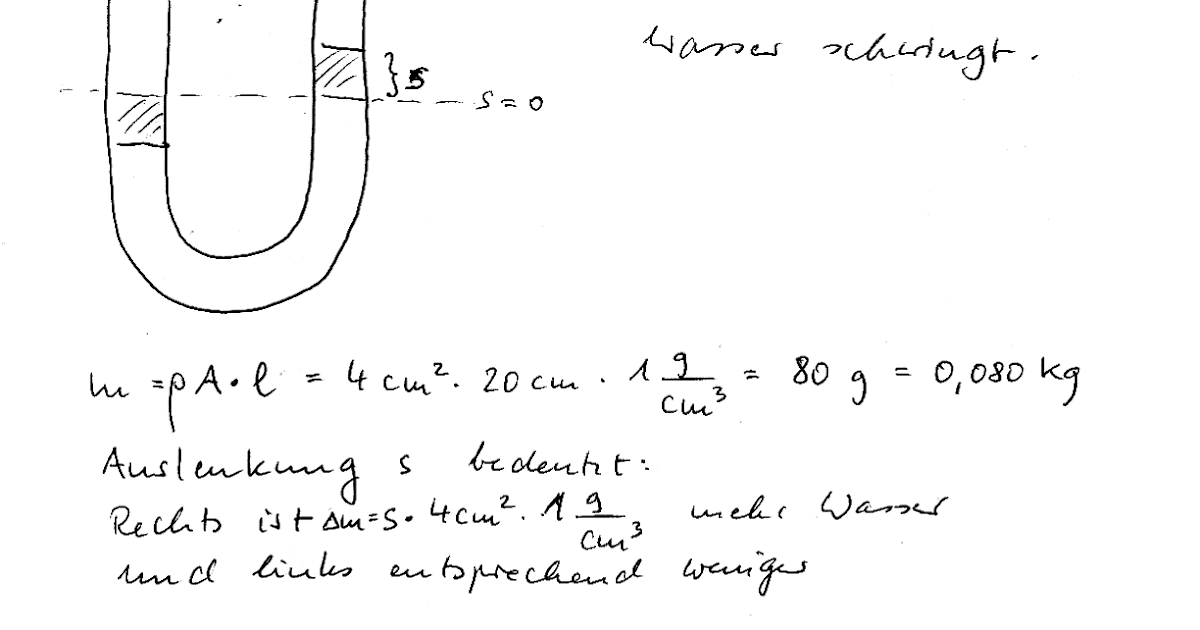 Wasser schwingt.
} s
s = 0
m = ρ A · l = 4 cm² · 20 cm · 1 g/cm³ = 80 g = 0,080 kg
Auslenkung s bedeutet:
Rechts ist Δm = s · 4 cm² · 1 g/cm³ mehr Wasser
und links entsprechend weniger